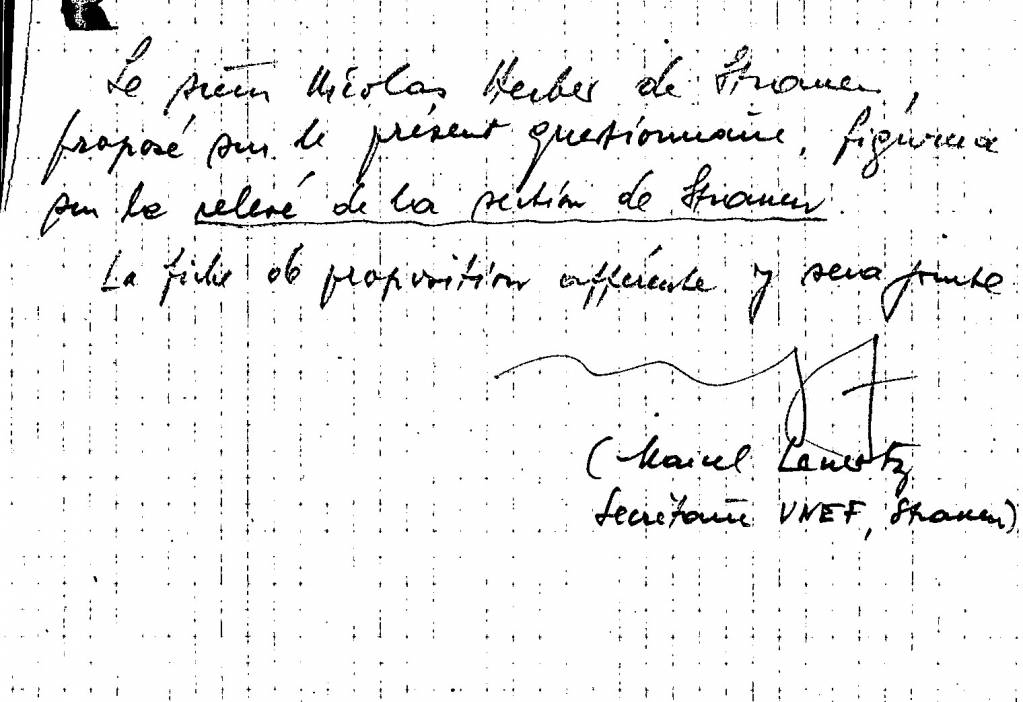 Le sieur Nicolas Herber de Strassen,
proposé sur le présent questionnaire, figurera
sur le relevé de la section de Strassen.
La fiche de proposition afférente y sera jointe
(Marcel Lamertz
Secrétaire UNEF, Strassen)